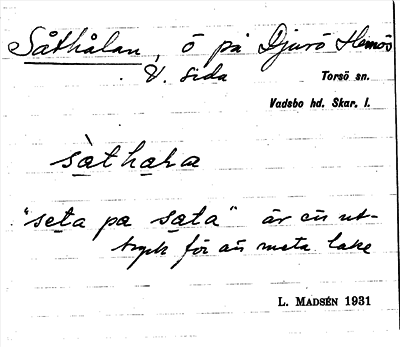 Såthålan, ö på Djurö Hemös
V. sida Torsö sn.
Vadsbo hd. Skar. l.
sàthaha
"seta pa sata" är en ut-
tryck för an meta lake
L. MADSÉN 1931